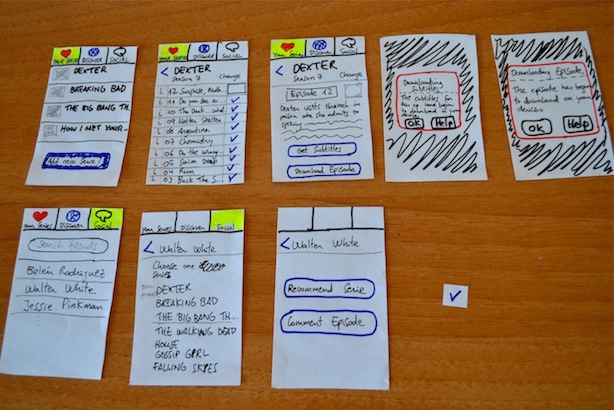 Your Series DISCOVER SOCIAL
DEXTER
BREAKING BAD
THE BIG BANG TH...
HOW I MET YOUR...
Add new Serie
Your Series DISCOVER SOCIAL
< DEXTER
SEASON 7 Change
12 Surprise,
11 Do you See
10 The Dark
09 Helter Skelter
08 Argentina
07 Chemistry
06 Do the Wrong
05 Swim Deep
04 Run
03 Buck The S...
Your Series DISCOVER Social
< DEXTER
Season 7 Change
Episode 12
Dexter visits Hannah in
prison who she admits to
Get Subtitles
Download Episode
Downloading
Subtitles
The subtitles for
OK Help
Downloading Episode
The episode has begun
to download on your
devices
OK Help
Your Series DISCOVER Social
Search friends
Belén Rodriguez
Walter White
Jessie Pinkman
Your Series Discover Social
< Walter White
Choose one
DEXTER
BREAKING BAD
THE BIG BANG TH...
THE WALKING DEAD
HOUSE
GOSSIP GIRL
FALLING SKYES
< Walter White
Recommend Serie
Comment Episode